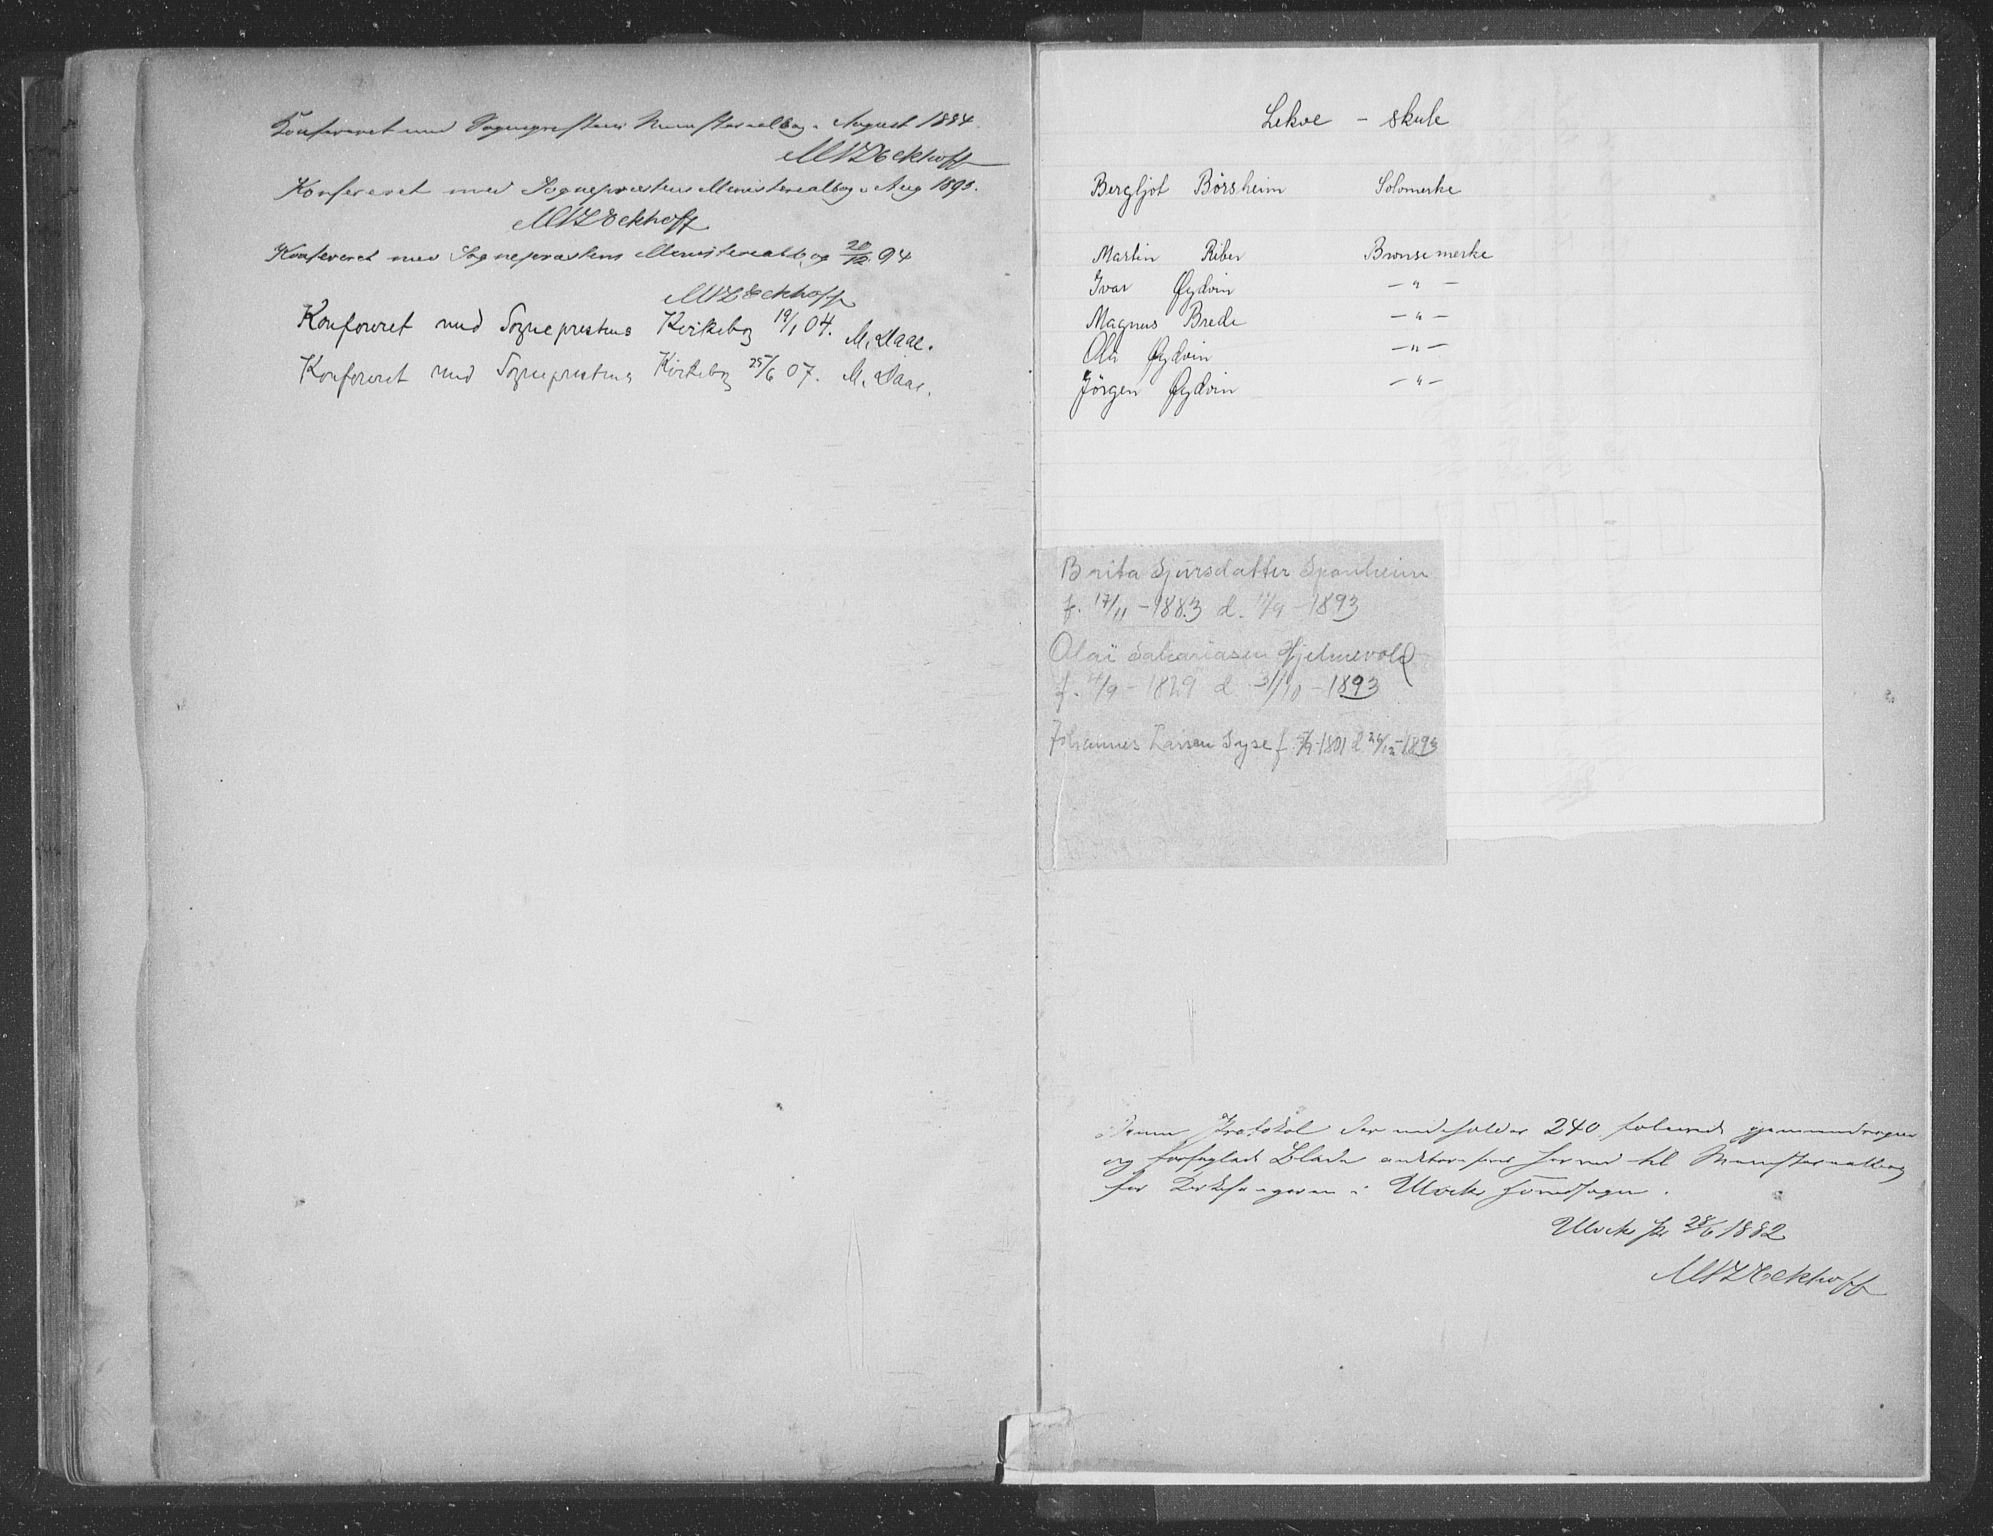 Konfereret med Sognepræstens Ministerialbog. August 1884.
MWZEckhoff
Konfereret med Sognepræstens Ministerialbog. Aug 1893.
MWZEckhoff
Konfereret med Sognepræstens Ministerialbog 20/12 94
MWZEckhoff
Konfereret med Sogneprestens Kirkebog 19/1 04. M. Daae.
Konfereret med Sogneprestens Kirkebog 25/6 07. M. Daae.
Lekve - skule
Bergljot Börsheim Solomerke
Martin Riber Bronsemerke
Ivar Øydvin — " —
Magnus Brede — " —
Ola Øydvin — " —
Jörgen Øydvin — " —
Brita Sjursdatter Sponheim
f. 17/11 - 1883 d. 11/9 - 1893
Olai Sakariasen Hjelmevold
f. /9 - 1829 d. 31/10 - 1893
Johannes Larsen Syse f. 1801 d. 26/12 - 1893
Denne Protokol der indeholder 240 folierede gjennemdragne
og forseglede Blade autoriseres herved til Ministerialbog
for Kirkesangeren i Ulvik Hovedsogn.
Ulvik p. 28/6 1882
MWZEckhoff